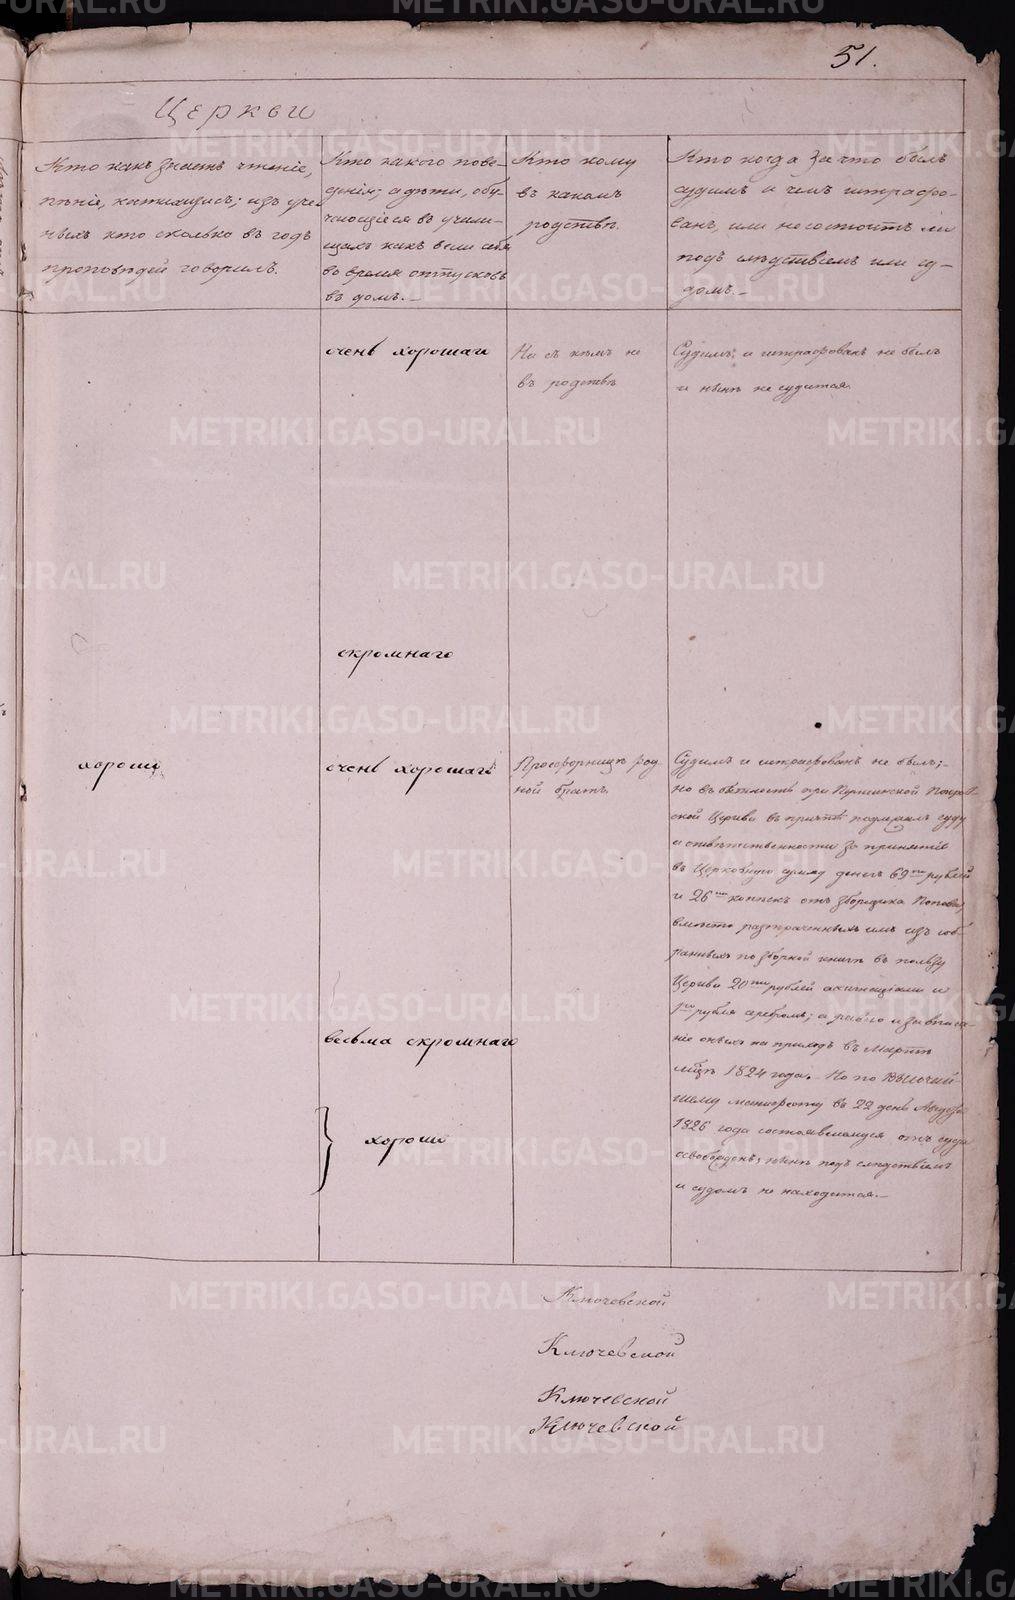 51.
Церкви
Кто какъ знаетъ чтенiе,
пѣнiе, катихизисъ; изъ уче-
ныхъ кто сколько въ годъ
проповѣдей говорилъ.
Кто какого пове-
денiя; а дѣти, обу-
чающiеся въ учили-
щахъ какъ вели себя
во время отпусковъ
въ домъ.—
Кто кому
въ какомъ
родствѣ.
Кто когда за что былъ
судимъ и чемъ штрафо-
ванъ, или не состоитъ ли
подъ слѣдствiемъ или су-
домъ.—
очень хорошаго
Ни съ кѣмъ не
въ родствѣ
Судимъ, и штрафованъ не былъ
и нынѣ не судится.
скромнаго
хорошо
очень хорошаго
Просфорницѣ род-
ной братъ.
Судимъ и штрафованъ не былъ;—
но въ бытность при Покров-
ской Церкви въ причтѣ подлежалъ суду
и отвѣтственности за принятiе
въ Церковную сумму денегъ 69ти рублей
и 26ти копѣекъ отъ зборщика Попова,
вмѣсто разтраченныхъ имъ изъ соб-
ранныхъ по зборной книгѣ въ пользу
Церкви 20ти рублей ассигнацiями и
рубля серебромъ; а равно и за вписа-
нiе оныхъ на приходъ въ Мартѣ
мцѣ 1824 года.— Но по Высочай-
шему манифесту въ 22 день Августа
1826 года состоявшемуся отъ суда
освобожденъ; нынѣ подъ слѣдствiемъ
и судомъ не находится.—
весьма скромнаго
хорошо
Ключевской
Ключевской
Ключевской
Ключевской
METRIKI.GASO-URAL.RU